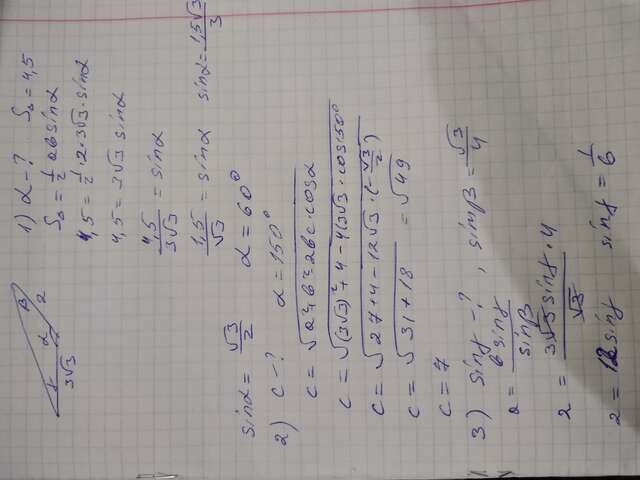 1) α-? S△ = 4,5
S△ = 1/2 ab sinα
4,5 = 1/2 · 2 · 3√3 · sinα
4,5 = 3√3 sinα
4,5/3√3 = sinα
1,5/√3 = sinα sinα = 1,5√3/3
sinα = √3/2 α = 60°
2) c-? α = 150°
c = √a²+b²-2bc·cosα
c = √(3√3)²+4-4(3√3·cos150°
c = √27+4-12√3·(-√3/2)
c = √31+18 = √49
c = 7
3) sinγ-?, sinβ = √3/4
a = b sinγ/sinβ
2 = 3√3 sinγ·4/√3
2 = 12 sinγ sinγ = 1/6
α
2
3√3